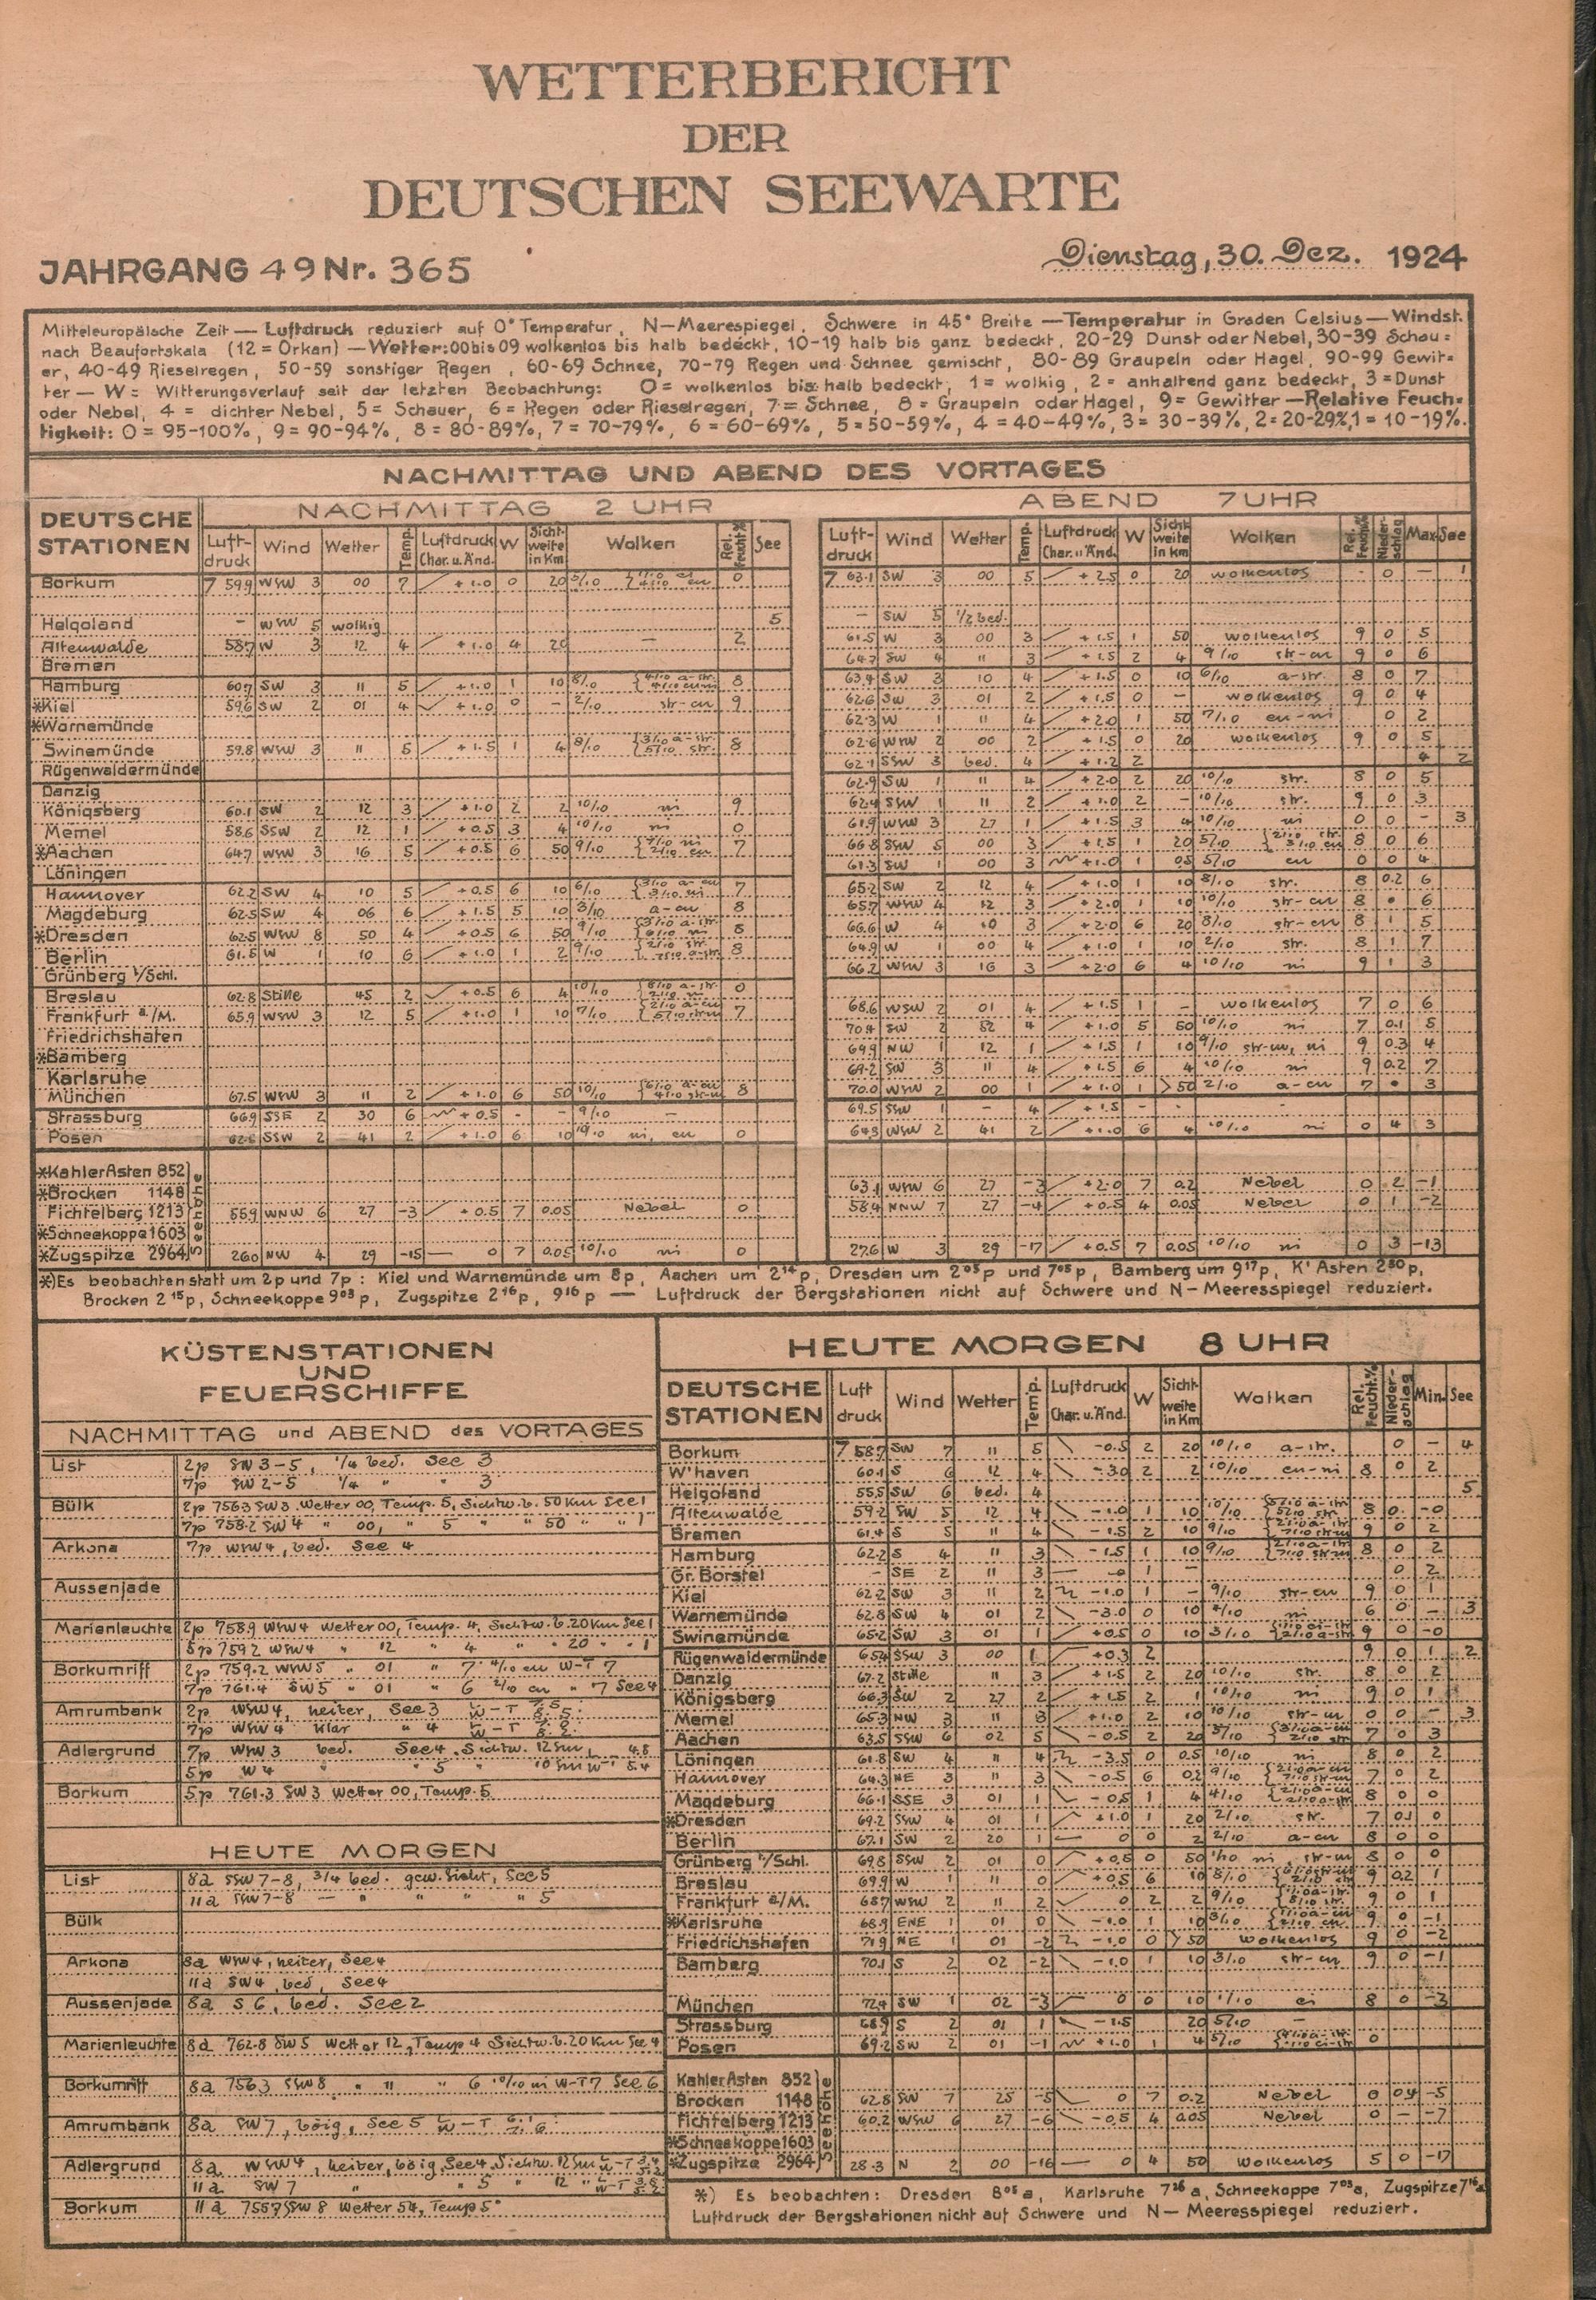 WETTERBERICHT
DER
DEUTSCHEN SEEWARTE
JAHRGANG 49 Nr. 365
Dienstag, 30. Dez. 1924
Mitteleuropäische Zeit — Luftdruck reduziert auf 0° Temperatur, N—Meerespiegel, Schwere in 45° Breite — Temperatur in Graden Celsius — Windst.
nach Beaufortskala (12 = Orkan) — Wetter: 00 bis 09 wolkenlos bis halb bedeckt, 10-19 halb bis ganz bedeckt, 20-29 Dunst oder Nebel, 30-39 Schau=
er, 40-49 Rieselregen, 50-59 sonstiger Regen, 60-69 Schnee, 70-79 Regen und Schnee gemischt, 80-89 Graupeln oder Hagel, 90-99 Gewit=
ter — W = Witterungsverlauf seit der letzten Beobachtung: 0 = wolkenlos bis halb bedeckt, 1 = wolkig, 2 = anhaltend ganz bedeckt, 3 = Dunst
oder Nebel, 4 = dichter Nebel, 5 = Schauer, 6 = Regen oder Rieselregen, 7 = Schnee, 8 = Graupeln oder Hagel, 9 = Gewitter — Relative Feuch=
tigkeit: 0 = 95-100%, 9 = 90-94%, 8 = 80-89%, 7 = 70-79%, 6 = 60-69%, 5 = 50-59%, 4 = 40-49%, 3 = 30-39%, 2 = 20-29%, 1 = 10-19%.
NACHMITTAG UND ABEND DES VORTAGES
DEUTSCHE STATIONEN
NACHMITTAG 2 UHR
Luft-druck Wind Wetter Temp. Luftdruck Char. u. Änd. W Sicht-weite in Km Wolken Rel. Feucht.% See
ABEND 7 UHR
Luft-druck Wind Wetter Temp. Luftdruck Char. u. Änd. W Sicht-weite in km Wolken Rel. Feucht.% Nieder-schlag Max See
Borkum 7 59.9 WSW 3 00 7 +1.0 0 20 0 7 63.1 SW 3 00 5 +2.5 0 20 wolkenlos - 0 — 1
Helgoland - WSW 5 wolkig 5 — SW 5 1/2 bed.
Altenwalde 58.7 W 3 12 4 +1.0 4 20 — 2 61.5 W 3 00 3 +1.5 1 50 wolkenlos 9 0 5
Bremen 64.7 SW 4 11 3 +1.5 2 4 9/10 str-cu 9 0 6
Hamburg 60.7 SW 3 11 5 +1.0 1 10 8/10 8 63.4 SW 3 10 4 +1.5 0 10 6/10 a-str. 8 0 7
*Kiel 59.6 SW 2 01 4 +1.0 0 — 2/10 str-cu 9 62.6 SW 3 01 2 +1.5 0 — wolkenlos 9 0 4
*Warnemünde 62.3 W 1 11 4 +2.0 1 50 7/10 cu-ni 0 2
Swinemünde 59.8 WSW 3 11 5 +1.5 1 4 8/10 8 62.6 WNW 2 00 2 +1.5 0 20 wolkenlos 9 0 5
Rügenwaldermünde 62.1 SSW 3 bed. 4 +1.2 2 4 2
Danzig 62.9 SW 1 11 4 +2.0 2 20 10/10 str. 8 0 5
Königsberg 60.1 SW 2 12 3 +1.0 2 2 10/10 ni 9 62.4 SSW 1 11 2 +1.0 2 — 10/10 str. 9 0 3
Memel 58.6 SSW 2 12 1 +0.5 3 4 10/10 ni 0 61.9 WSW 3 27 1 +1.5 3 4 10/10 ni 0 0 - 3
*Aachen 64.7 WSW 3 16 5 +0.5 6 50 9/10 7 66.8 SSW 5 00 3 +1.5 1 20 5/10 8 0 6
Löningen 61.3 SW 1 00 3 +1.0 1 0.5 5/10 cu 0 0 4
Hannover 62.2 SW 4 10 5 +0.5 6 10 6/10 7 65.2 SW 2 12 4 +1.0 1 10 8/10 str. 8 0.2 6
Magdeburg 62.5 SW 4 06 6 +1.5 5 10 3/10 a-cu 8 65.7 WSW 4 12 3 +2.0 1 10 10/10 str-cu 8 • 6
*Dresden 62.5 WSW 8 50 4 +0.5 6 50 9/10 8 66.6 W 4 3 +2.0 6 20 8/10 str-cu 8 1 5
Berlin 61.5 W 1 10 6 +1.0 1 2 9/10 8 64.9 W 1 00 4 +1.0 1 10 2/10 str. 8 1 7
Grünberg i/Schl. 66.2 WSW 3 16 3 +2.0 6 4 10/10 ni 9 1 3
Breslau 62.8 Stille 45 2 +0.5 6 4 10/10 0
Frankfurt a./M. 65.9 WSW 3 12 5 +1.0 1 10 7/10 7 68.6 WSW 2 01 4 +1.5 1 - wolkenlos 7 0 6
Friedrichshafen 70.4 SW 2 4 +1.0 5 50 10/10 ni 7 0.1 5
*Bamberg 69.9 NW 1 12 1 +1.5 1 10 9/10 str-cu, ni 9 0.3 4
Karlsruhe 69.2 SW 3 11 4 +1.5 6 4 10/10 ni 9 0.2 7
München 67.5 WSW 3 11 2 +1.0 6 50 10/10 8 70.0 WSW 2 00 1 +1.0 1 >50 2/10 a-cu 7 • 3
Strassburg 66.9 SSE 2 30 6 +0.5 - - 9/10 — 69.5 SSW 1 - 4 +1.5 -
Posen 62.8 SSW 2 41 2 +1.0 6 10 10/10 ni, cu 0 64.3 WSW 2 41 2 +1.0 6 4 10/10 ni 0 4 3
Seehöhe
*Kahler Asten 852
*Brocken 1148 63.1 WSW 6 27 -3 +2.0 7 0.2 Nebel 0 2 -1
Fichtelberg 1213 55.9 WNW 6 27 -3 +0.5 7 0.05 Nebel 0 58.4 NNW 7 27 -4 +0.5 4 0.05 Nebel 0 1 -2
*Schneekoppe 1603
*Zugspitze 2964 26.0 NW 4 29 -15 — 0 7 0.05 10/10 ni 0 27.6 W 3 29 -17 +0.5 7 0.05 10/10 ni 0 3 -13
*) Es beobachten statt um 2p und 7p: Kiel und Warnemünde um 8p, Aachen um 2¹⁴p, Dresden um 2⁰⁵p und 7⁰⁵p, Bamberg um 9¹⁷p, K' Asten 2³⁰p,
Brocken 2¹⁵p, Schneekoppe 9⁰³p, Zugspitze 2¹⁶p, 9¹⁶p — Luftdruck der Bergstationen nicht auf Schwere und N—Meeresspiegel reduziert.
KÜSTENSTATIONEN
UND
FEUERSCHIFFE
NACHMITTAG und ABEND des VORTAGES
List 2p SW 3-5, 1/4 bed. See 3
7p SW 2-5 1/4 " " 3
Bülk 2p 756.3 SW 3 Wetter 00, Temp. 5, Sichtw. b. 50 Km See 1
7p 758.2 SW 4 " 00, " 5 " " 50 " " 1
Arkona 7p WSW 4, bed. See 4
Aussenjade
Marienleuchte 2p 758.9 WSW 4 Wetter 00, Temp. 4, Sichtw. b. 20 Km See 1
5p 759.2 WSW 4 " 12 " 4 " " 20 " " 1
Borkumriff 2p 759.2 WSW 5 " 01 " 7 4/10 cu W-T 7
7p 761.4 SW 5 " 01 " 6 2/10 cu " 7 See 4
Amrumbank 2p WSW 4, heiter, See 3
7p WSW 4 klar " 4
Adlergrund 7p WSW 3 bed. See 4, Sichtw. 12 Sm
5p W 4 " " 5 " 10 Sm
Borkum 5p 761.3 SW 3 Wetter 00, Temp. 5
HEUTE MORGEN
List 8a SSW 7-8, 3/4 bed. gew. Sicht, See 5
11a SSW 7-8 — " " " " 5
Bülk
Arkona 8a WSW 4, heiter, See 4
11a SW 4, bed, See 4
Aussenjade 8a S 6, bed. See 2
Marienleuchte 8a 762.8 SW 5 Wetter 12, Temp 4 Sichtw. b. 20 Km See 4
Borkumriff 8a 756.3 SSW 8 " 11 " 6 10/10 ni W-T 7 See 6
Amrumbank 8a SW 7, böig, See 5
Adlergrund 8a WSW 4, heiter, böig, See 4, Sichtw. 12 Sm
11a SW 7 " 5 " 12 "
Borkum 11a 755.7 SSW 8 Wetter 54, Temp 5°
HEUTE MORGEN 8 UHR
DEUTSCHE STATIONEN Luft druck Wind Wetter Temp. Luftdruck Char. u. Änd. W Sicht-weite in Km Wolken Rel. Feucht.% Nieder-schlag Min. See
Borkum 7 58.7 SW 7 11 5 -0.5 2 20 10/10 a-str. 0 — 4
W'haven 60.1 S 6 12 4 -3.0 2 2 10/10 cu-ni 8 0 2
Helgoland 55.5 SW 6 bed. 4 5
Altenwalde 59.2 SW 5 12 4 -1.0 1 10 10/10 8 0 -0
Bremen 61.4 S 5 11 4 -1.5 2 10 9/10 9 0 2
Hamburg 62.2 S 4 11 3 -1.5 1 10 9/10 8 0 2
Gr. Borstel - SE 2 11 3 — -0 1 — 0 2
Kiel 62.2 SW 3 11 2 -1.0 1 — 9/10 str-cu 9 0 1
Warnemünde 62.8 SW 4 01 2 -3.0 0 10 4/10 ni 6 0 — 3
Swinemünde 65.2 SW 3 01 1 +0.5 0 10 3/10 9 0 -0
Rügenwaldermünde 65.4 SSW 3 00 1 +0.3 2 9 0 1 2
Danzig 67.2 Stille 11 3 +1.5 2 20 10/10 str. 8 0 2
Königsberg 66.3 SW 2 27 2 +1.5 2 1 10/10 ni 9 0 1
Memel 65.3 NW 3 11 3 +1.0 2 10 10/10 str-cu 0 0 — 3
Aachen 63.5 SSW 6 02 5 -0.5 2 20 5/10 7 0 3
Löningen 61.8 SW 4 11 4 -3.5 0 0.5 10/10 ni 8 0 2
Hannover 64.3 NE 3 11 3 -0.5 6 0.2 9/10 7 0 2
Magdeburg 66.1 SSE 3 01 1 -0.5 1 4 4/10 8 0 0
*Dresden 69.2 SSW 4 01 1 +1.0 1 20 2/10 str. 7 0.1 0
Berlin 67.1 SW 2 20 1 — 0 0 2 2/10 a-cu 8 0 0
Grünberg i/Schl. 69.8 SSW 2 01 0 +0.5 0 50 1/10 ni, str-cu 8 0 0
Breslau 69.9 W 1 11 0 +0.5 6 10 8/10 9 0.2 1
Frankfurt a./M. 68.7 WSW 2 11 2 0 2 2 9/10 9 0 1
*Karlsruhe 68.9 ENE 1 01 0 -1.0 1 10 3/10 9 0 -1
Friedrichshafen 71.9 NE 1 01 -2 -1.0 0 >50 wolkenlos 9 0 -2
Bamberg 70.1 S 2 02 -2 -1.0 1 10 3/10 str-cu 9 0 -1
München 72.4 SW 1 02 -3 0 0 10 1/10 ci 8 0 -3
Strassburg 68.9 S 2 01 1 -1.5 20 5/10 —
Posen 69.2 SW 2 01 -1 +1.0 1 4 5/10 0
Seehöhe
Kahler Asten 852
Brocken 1148 62.8 SW 7 25 -5 0 7 0.2 Nebel 0 0.4 -5
Fichtelberg 1213 60.2 WSW 6 27 -6 -0.5 4 0.05 Nebel 0 — -7
*Schneekoppe 1603
*Zugspitze 2964 28.3 N 2 00 -16 — 0 4 50 wolkenlos 5 0 -17
*) Es beobachten: Dresden 8⁰⁵a, Karlsruhe 7²⁶a, Schneekoppe 7⁰³a, Zugspitze 7¹⁶a
Luftdruck der Bergstationen nicht auf Schwere und N—Meeresspiegel reduziert.